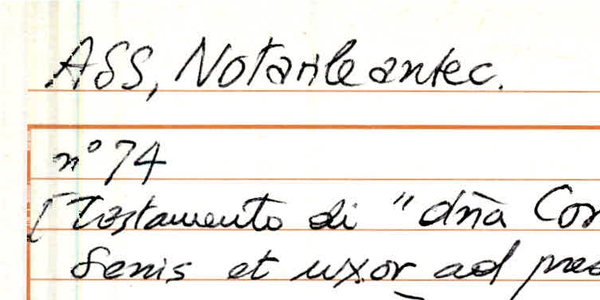 ASS, Notarile antec.
n° 74
[Testamento di "dña Con
Senis et uxor ad prae